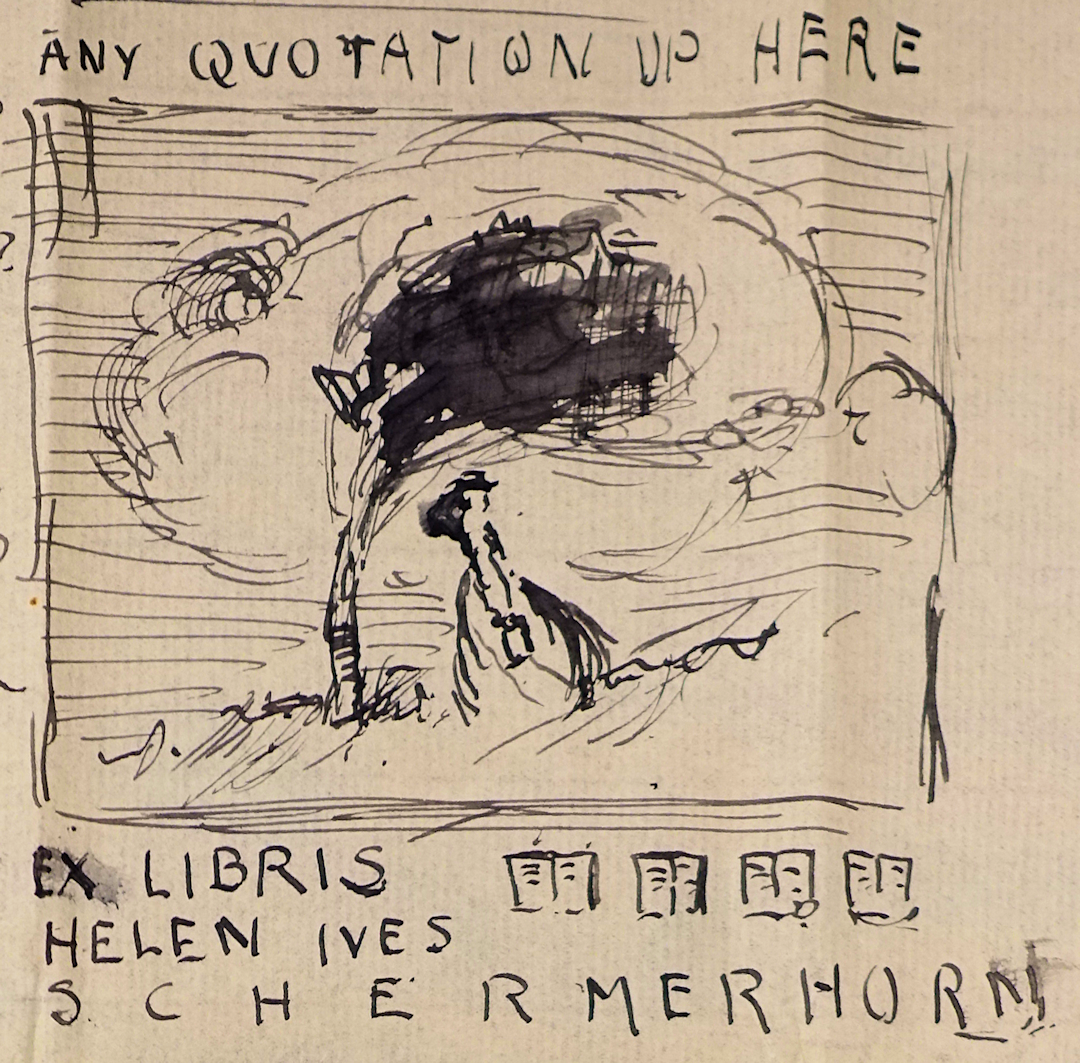 ANY QUOTATION UP HERE
EX LIBRIS
HELEN IVES
SCHERMERHORN